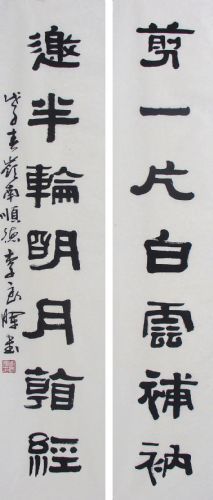 剪一片白雲補衲
邀半輪明月看經
戊子春嶺南順德李良暉書